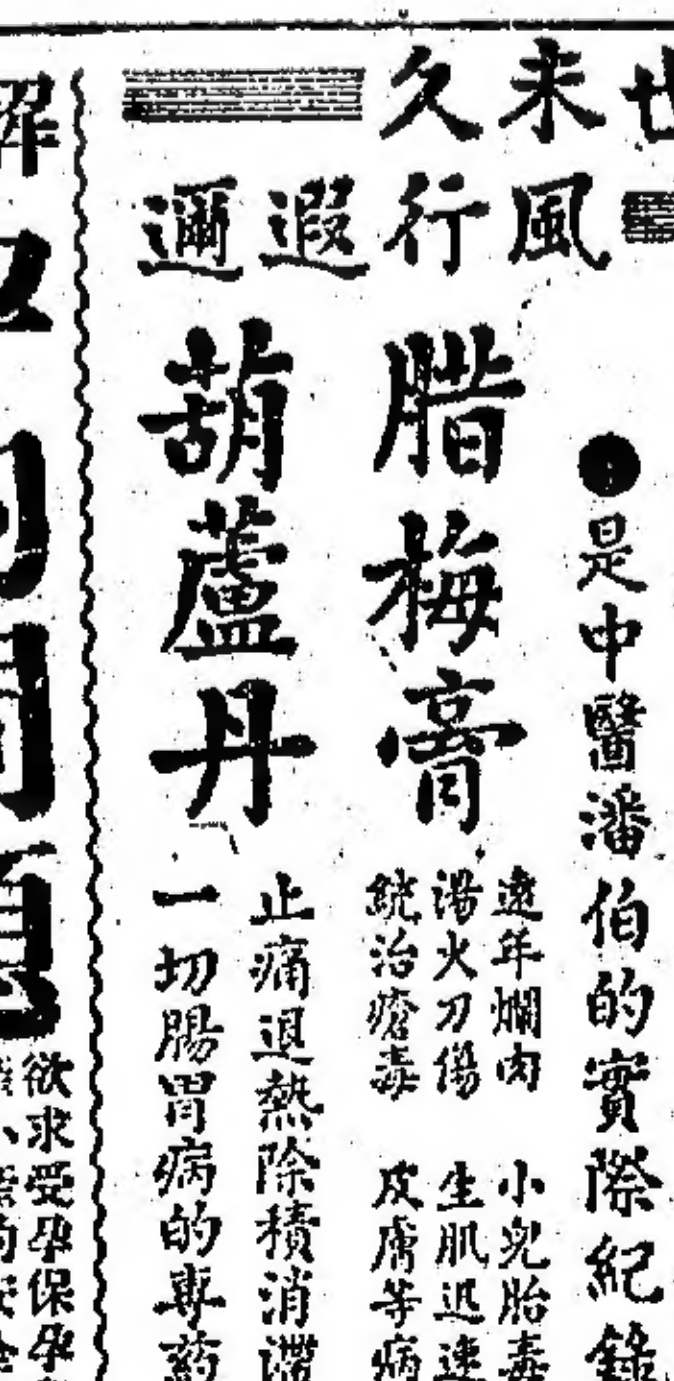 未久
風行
遐邇
●是中醫潘伯的實際紀錄
腊梅膏
遠年爛肉 小兒胎毒
湯火刀傷 生肌迅速
統治瘡毒 皮膚等病
葫蘆丹
止痛退熱除積消滯
一切腸胃病的專药
欲求受孕保孕